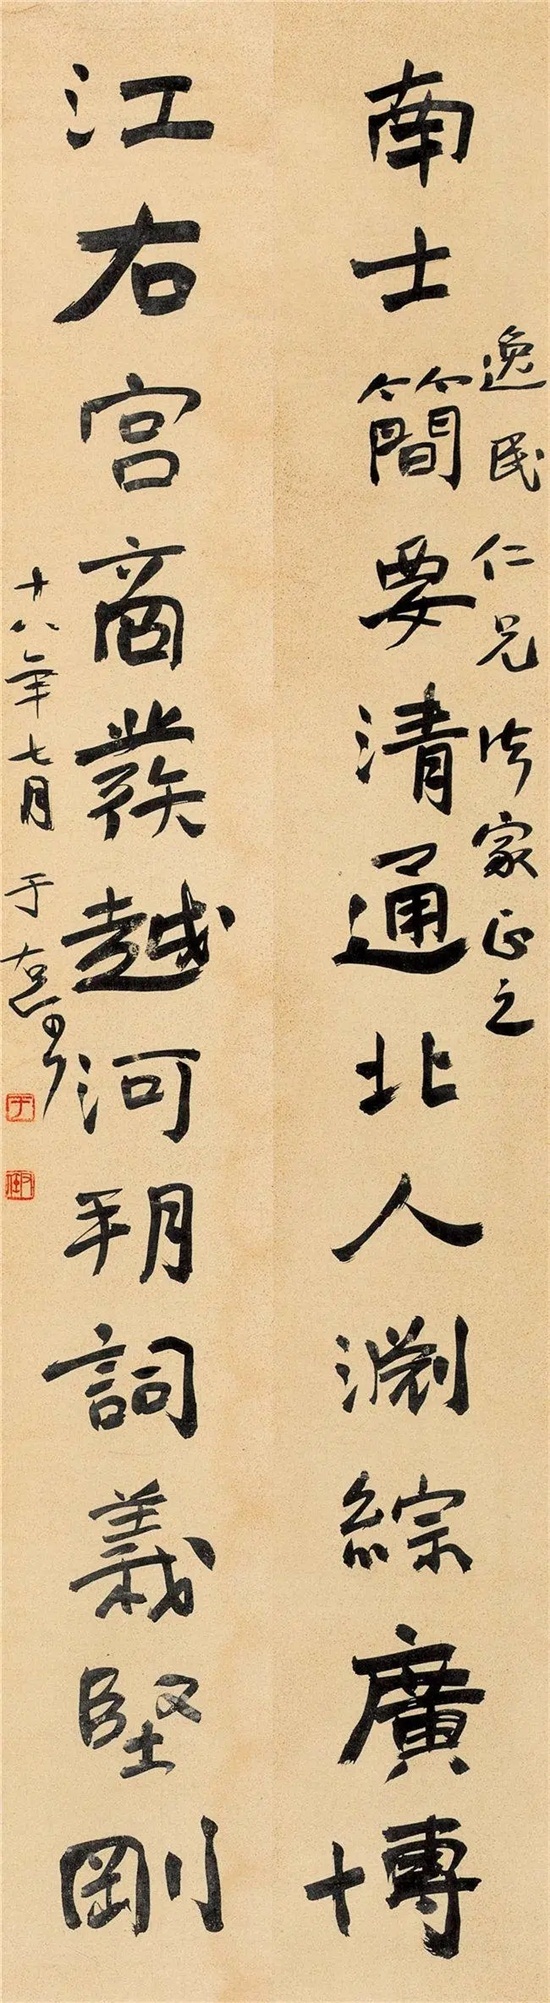 逸民仁兄法家正之
南士簡要清通北人淵綜廣博
江右宮商發越河朔詞義堅剛
十八年七月于
于